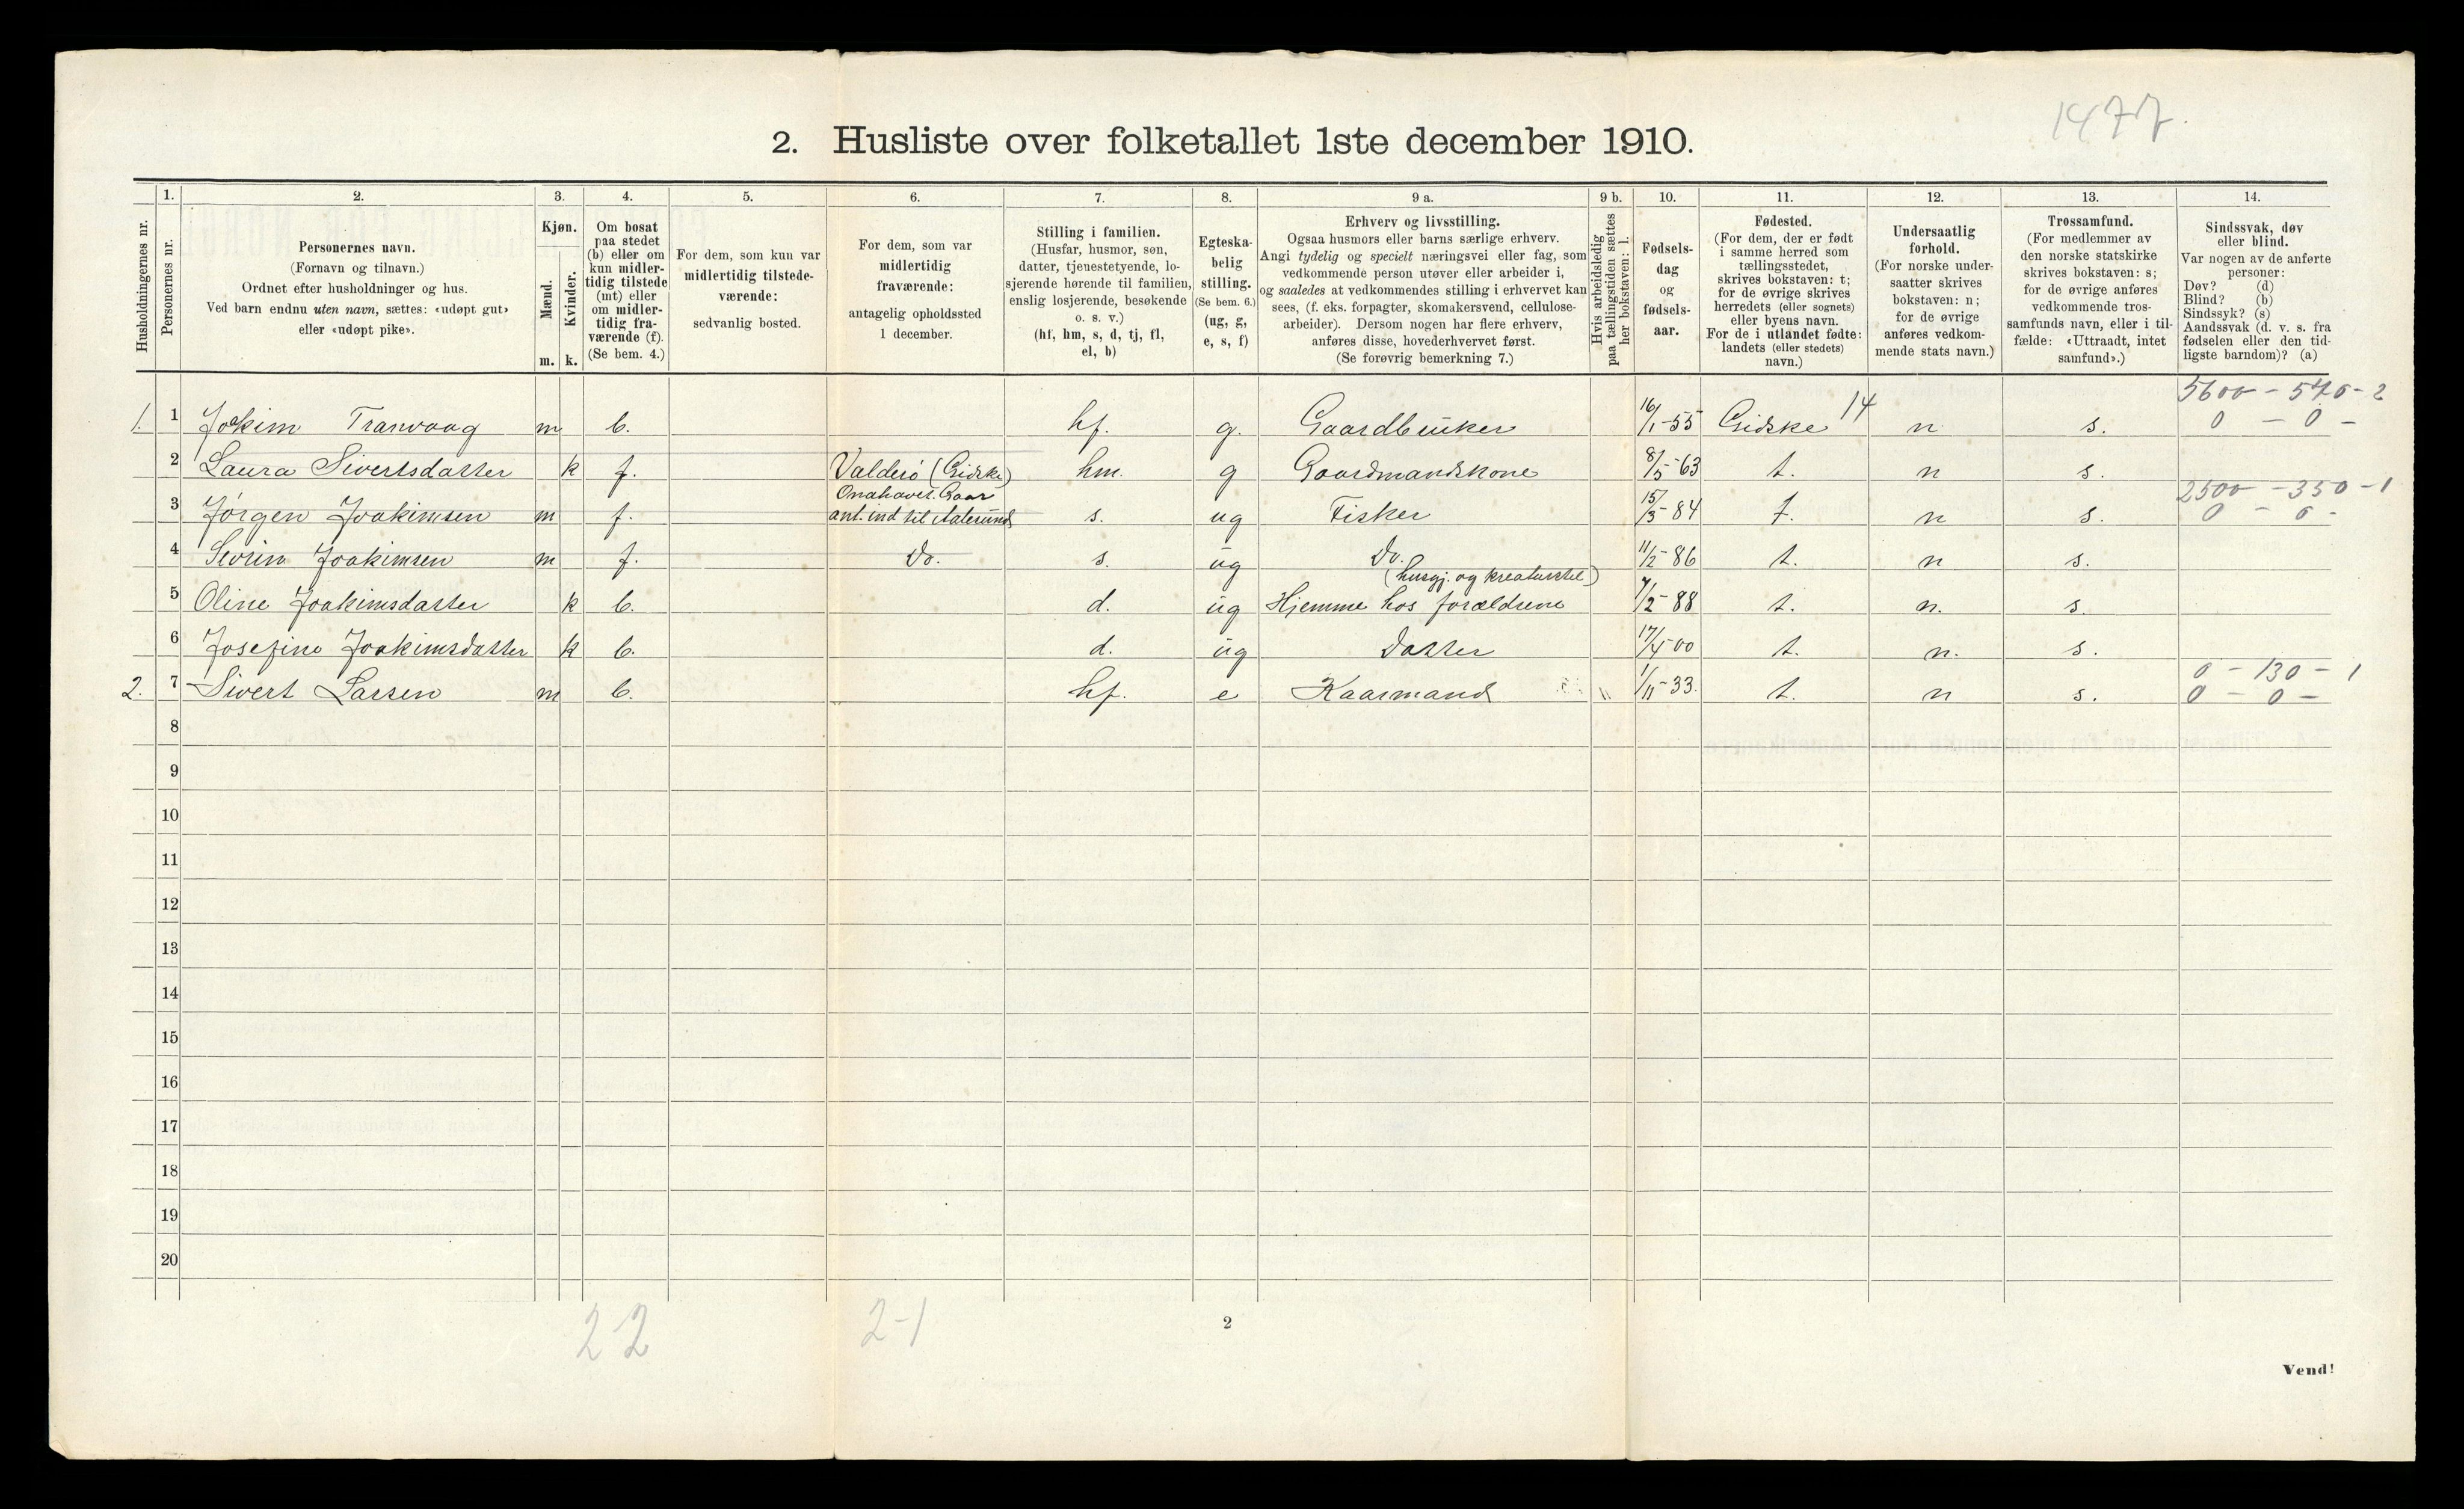 1477.
2. Husliste over folketallet 1ste december 1910.
Husholdningernes nr.
1. Personernes nr.
2. Personernes navn.
(Fornavn og tilnavn.)
Ordnet efter husholdninger og hus.
Ved barn endnu uten navn, sættes: «udøpt gut»
eller «udøpt pike».
3. Kjøn.
Mænd. m.
Kvinder. k.
4. Om bosat
paa stedet
(b) eller om
kun midler-
tidig tilstede
(mt) eller
om midler-
tidig fra-
værende (f).
(Se bem. 4.)
5. For dem, som kun var
midlertidig tilstede-
værende:
sedvanlig bosted.
6. For dem, som var
midlertidig
fraværende:
antagelig opholdssted
1 december.
7. Stilling i familien.
(Husfar, husmor, søn,
datter, tjenestetyende, lo-
sjerende hørende til familien,
enslig losjerende, besøkende
o. s. v.)
(hf, hm, s, d, tj, fl,
el, b)
8. Egteska-
belig
stilling.
(Se bem. 6.)
(ug, g,
e, s, f)
9 a. Erhverv og livsstilling.
Ogsaa husmors eller barns særlige erhverv.
Angi tydelig og specielt næringsvei eller fag, som
vedkommende person utøver eller arbeider i,
og saaledes at vedkommendes stilling i erhvervet kan
sees, (f. eks. forpagter, skomakersvend, cellulose-
arbeider). Dersom nogen har flere erhverv,
anføres disse, hovederhvervet først.
(Se forøvrig bemerkning 7.)
9 b. Hvis arbeidsledig
paa tællingstiden sættes
her bokstaven: l.
10. Fødsels-
dag
og
fødsels-
aar.
11. Fødested.
(For dem, der er født
i samme herred som
tællingsstedet,
skrives bokstaven: t;
for de øvrige skrives
herredets (eller sognets)
eller byens navn.
For de i utlandet fødte:
landets (eller stedets)
navn.)
12. Undersaatlig
forhold.
(For norske under-
saatter skrives
bokstaven: n;
for de øvrige
anføres vedkom-
mende stats navn.)
13. Trossamfund.
(For medlemmer av
den norske statskirke
skrives bokstaven: s;
for de øvrige anføres
vedkommende tros-
samfunds navn, eller i til-
fælde: «Uttraadt, intet
samfund».)
14. Sindssvak, døv
eller blind.
Var nogen av de anførte
personer:
Døv? (d)
Blind? (b)
Sindssyk? (s)
Aandssvak (d. v. s. fra
fødselen eller den tid-
ligste barndom)? (a)
5600 - 570 - 2
1. 1 Joakim m b. hf. g. Gaardbruker 16/1-55 Gidske 14 n s. 0 - 0 -
2 Laura Sivertsdatter k f. Valderø (Gidske) hm. g Gaardmandskone 8/5-63 t. n s.
Onahavet. Gaar 2500 - 350 - 1
3 Jørgen Joakimsen m f. ant. ind til Aalesund s. ug Fisker 15/3-84 t. n s. 0 - 0 -
4 Sevrin Joakimsen m f. Do. s. ug Do. 11/2-86 t. n s.
(husgj. og kreaturstel)
5 Oline Joakimsdatter k b. d. ug Hjemme hos forældrene 7/2-88 t. n. s.
6 Josefine Joakimsdatter k b. d. ug Datter 17/4 00 t. n. s.
0 - 130 - 1
2. 7 Sivert Larsen m b. hf. e Kaarmand 1/11-33. t. n s. 0 - 0 -
8
9
10
11
12
13
14
15
16
17
18
19
20
2 2 2-1
2
Vend!